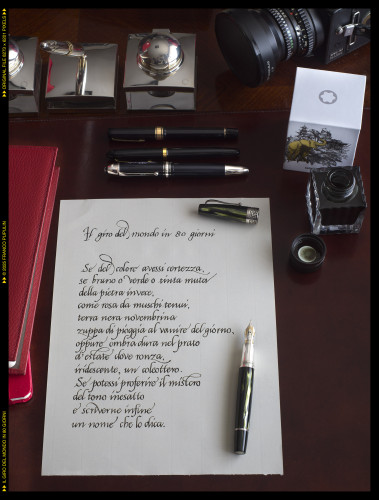 Il giro del mondo in 80 giorni
Se del colore avessi certezza,
se bruno o verde o tinta muta
della pietra invece,
come rosa da muschi tenui,
terra nera novembrina
zuppa di pioggia al venire del giorno,
oppure ombra dura nel prato
d'estate dove ronza,
iridescente, un coleottero.
Se potessi proferire il mistero
del tono inesatto
e scriverne infine
un nome che lo dica.
© 2025 FRANCO PUPULIN
IL GIRO DEL MONDO IN 80 GIORNI